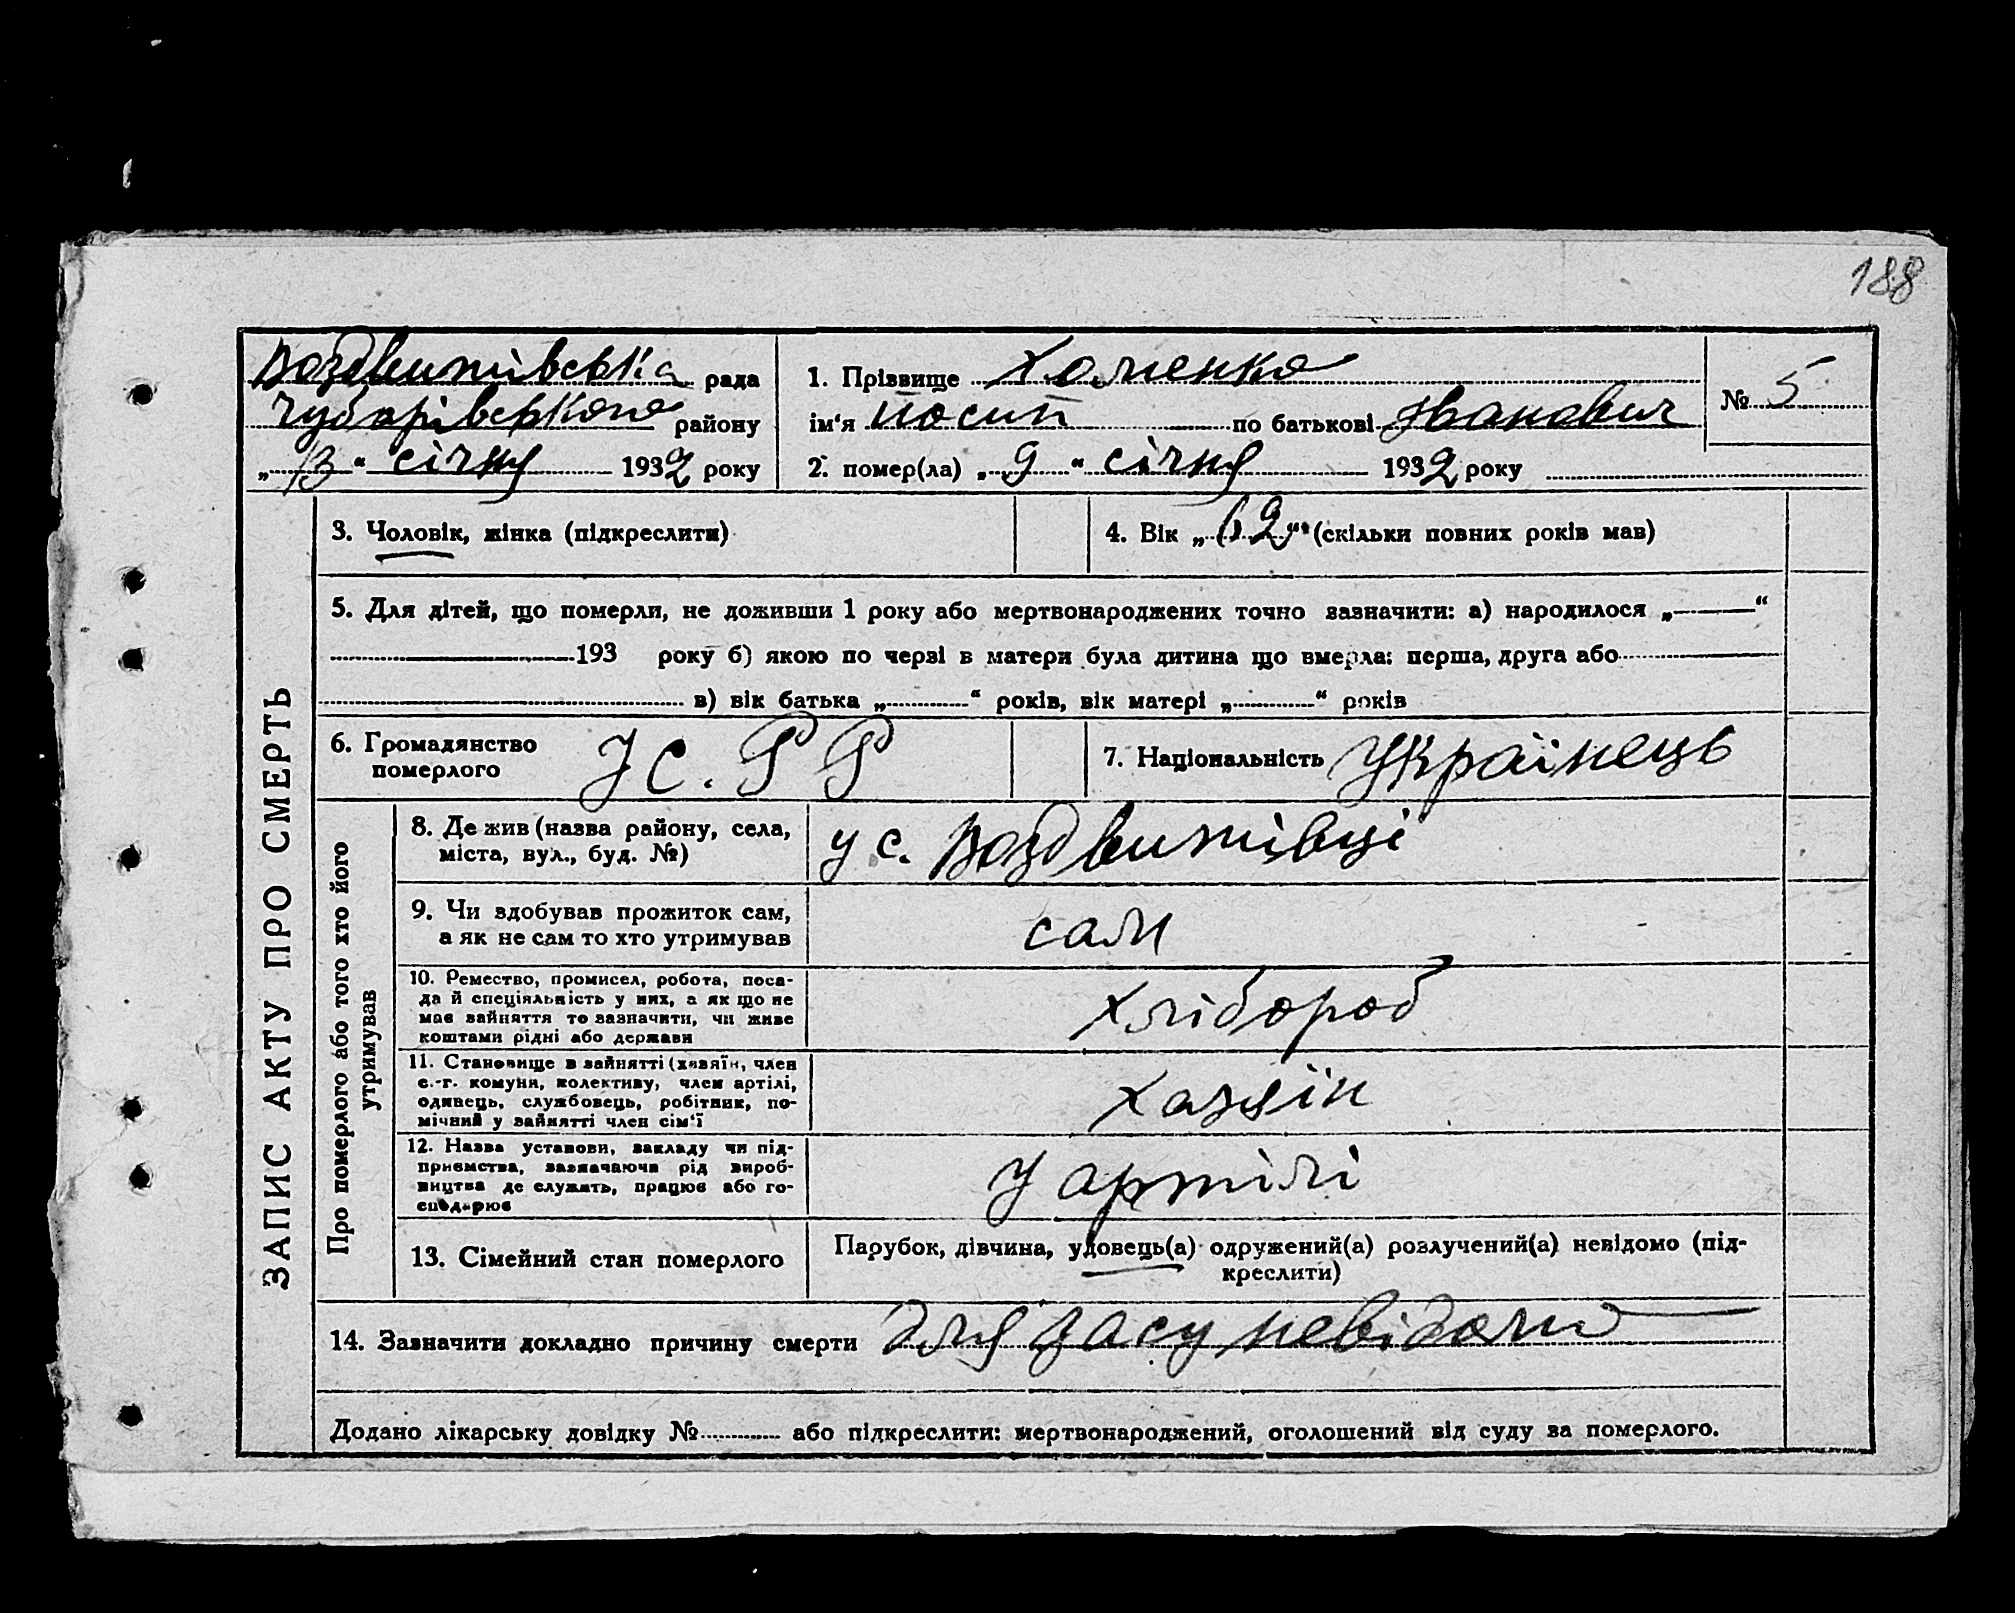 188
Воздвижівська рада
Чубарівського району
„13“ січня 1932 року
1. Прізвище Хоменко
ім‘я Йосип по батькові Іванович
2. помер(ла) „9“ січня 1932 року
№ 5
ЗАПИС АКТУ ПРО СМЕРТЬ
3. Чоловік, жінка (підкреслити)
4. Вік „62“ (скільки повних років мав)
5. Для дітей, що померли, не доживши 1 року або мертвонароджених точно зазначити: а) народилося „ “
193 року б) якою по черзі в матери була дитина що вмерла: перша, друга або
в) вік батька „ “ років, вік матері „ “ років
6. Громадянство
померлого УС.РР
7. Національність Українець
Про померлого або того хто його
утримував
8. Де жив (назва району, села,
міста, вул., буд. №)
у с. Воздвижівці
9. Чи здобував прожиток сам,
а як не сам то хто утримував
сам
10. Ремество, промисел, робота, поса-
да й спеціяльність у них, а як що не
має зайняття то зазначити, чи живе
коштами рідні або держави
хлібороб
11. Становище в зайнятті (хазяїн, член
с.-г. комуни, колективу, член артілі,
одинець, службовець, робітник, по-
мічний у зайнятті член сім‘ї
хазяїн
12. Назва установи, закладу чи під-
приємства, зазначаючи рід вироб-
ництва де служить, працює або го-
сподарює
У артілі
13. Сімейний стан померлого
Парубок, дівчина, удовець(а) одружений(а) розлучений(а) невідомо (під-
креслити)
14. Зазначити докладно причину смерти для засу невідоми
Додано лікарську довідку № або підкреслити: мертвонароджений, оголошений від суду за померлого.